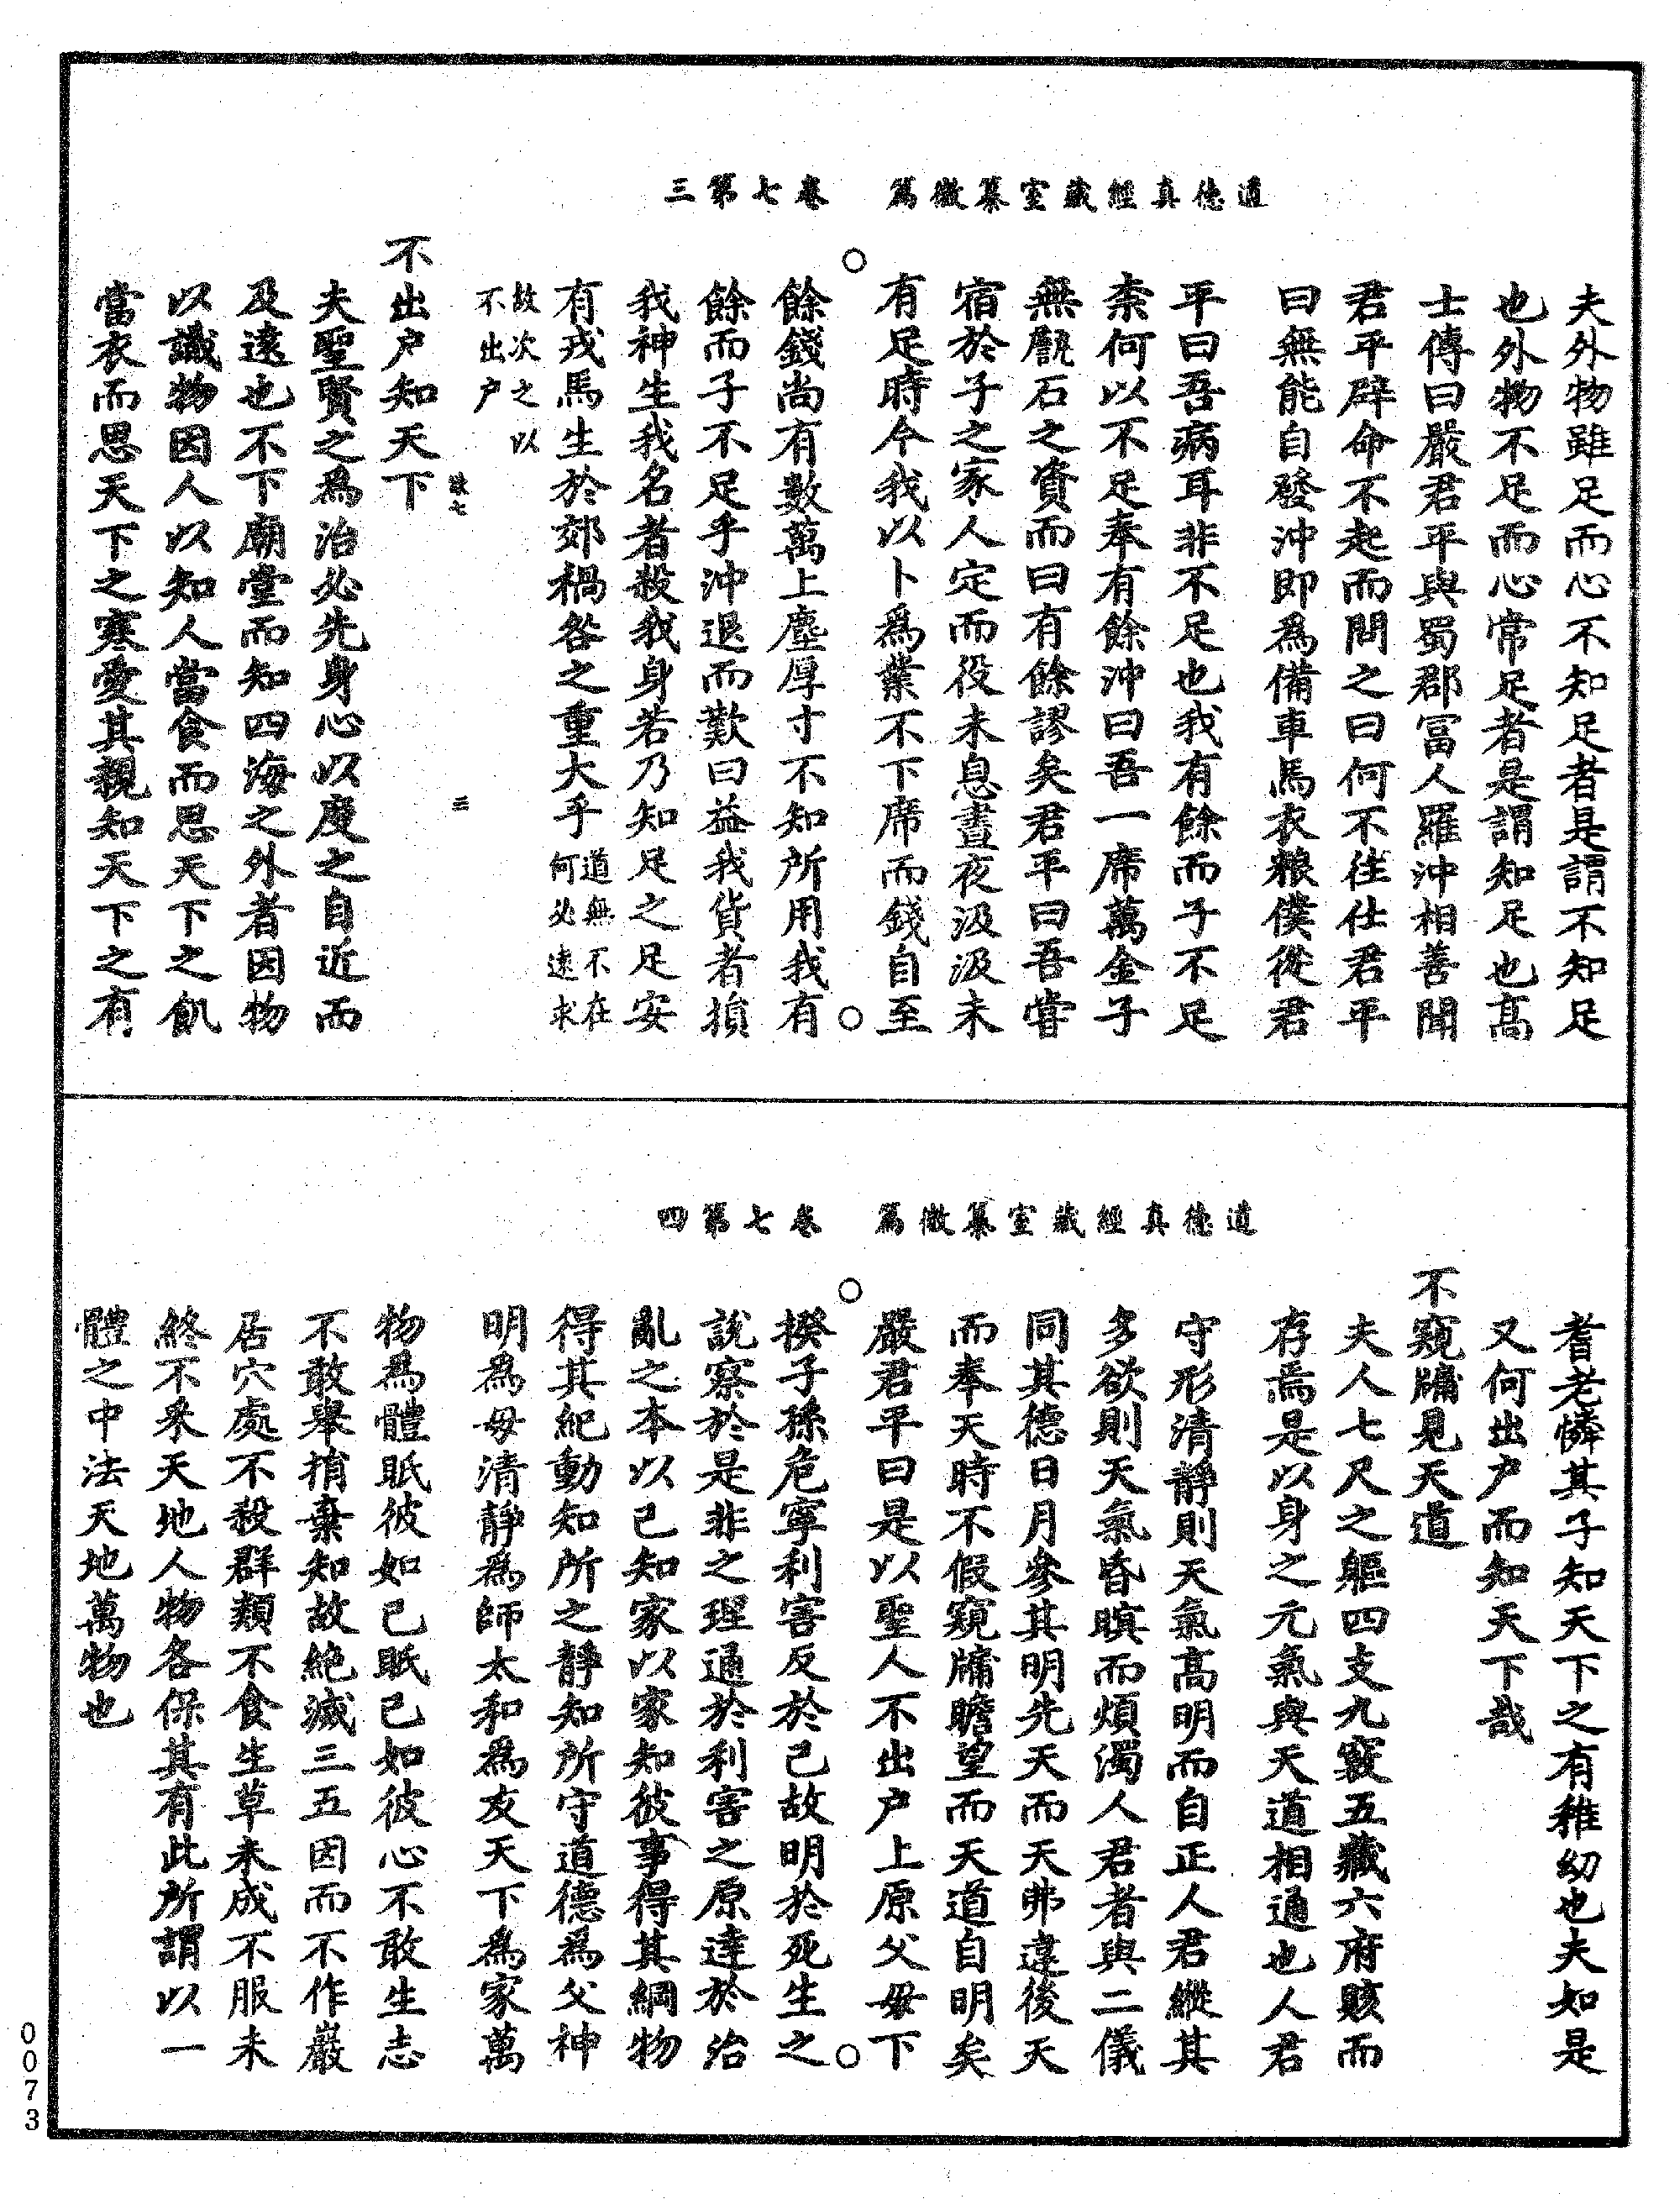 道德真經藏室纂微篇　卷七第三
夫外物雖足而心不知足者是謂不知足
也外物不足而心常足者是謂知足也高
士傳曰嚴君平與蜀郡富人羅沖相善聞
君平辟命不起而問之曰何不往仕君平
曰無能自發沖即為備車馬衣粮僕從君
平曰吾病耳非不足也我有餘而子不足
柰何以不足奉有餘沖曰吾一席萬金子
無甔石之資而曰有餘謬矣君平曰吾嘗
宿於子之家人定而役未息晝夜汲汲未
有足時今我以卜為業不下席而錢自至
餘錢尚有數萬上塵厚寸不知所用我有
餘而子不足乎沖退而歎曰益我貨者損
我神生我名者殺我身若乃知足之足安
有戎馬生於郊禍咎之重大乎道無不在
何必遠求
故次之以
不出户
三
不出户知天下
夫聖賢之為治必先身心以度之自近而
及遠也不下廟堂而知四海之外者因物
以識物因人以知人當食而思天下之飢
當衣而思天下之寒愛其親知天下之有
道德真經藏室纂微篇　卷七第四
耆老憐其子知天下之有稚幼也夫知是
又何出户而知天下哉
不窺牖見天道
夫人七尺之軀四支九竅五藏六府賅而
存焉是以身之元氣與天道相通也人君
守形清靜則天氣高明而自正人君縱其
多欲則天氣昏暝而煩濁人君者與二儀
同其德日月參其明先天而天弗違後天
而奉天時不假窺牖瞻望而天道自明矣
嚴君平曰是以聖人不出户上原父母下
揆子孫危寧利害反於己故明於死生之
說察於是非之理通於利害之原達於治
亂之本以己知家以家知彼事得其綱物
得其紀動知所之靜知所守道德為父神
明為母清靜為師太和為友天下為家萬
物為體眂彼如己眂己如彼心不敢生志
不敢舉捐棄知故絕滅三五因而不作巖
居穴處不殺群類不食生草未成不服未
終不采天地人物各保其有此所謂以一
體之中法天地萬物也
0073